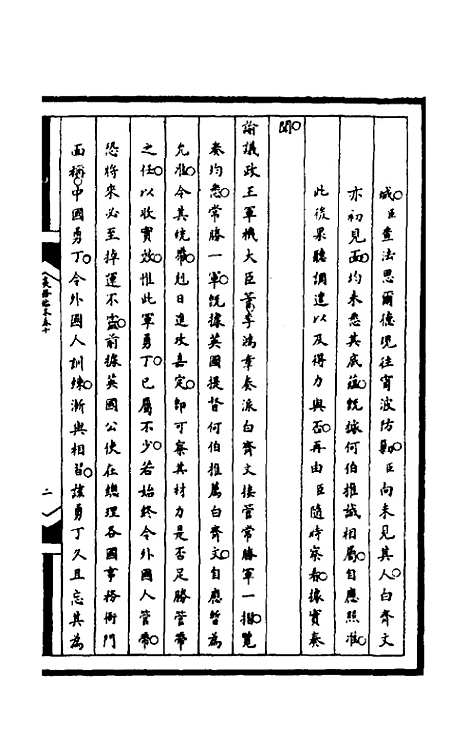 城臣查法思爾德現往甯波防剿臣向未見其人白齊文
亦初見面均未悉其底蘊旣據何伯推誠相屬自應照准
此後果聽調遣以及得力與否再由臣隨時察看據實奏
聞
諭議政王軍機大臣等李鴻章奏派白齊文接管常勝軍一摺覽
奏均悉常勝一軍旣據英國提督何伯推薦白齊文自應暫爲
允准令其統帶赳日進攻嘉定卽可察其材力是否足勝管帶
之任以收實效惟此軍勇丁已屬不少若始終令外國人管帶
恐將來必至掉運不靈前據英國公使在總理各國事務衙門
面稱中國勇丁令外國人訓練漸與相習該勇丁久且忘其爲
二